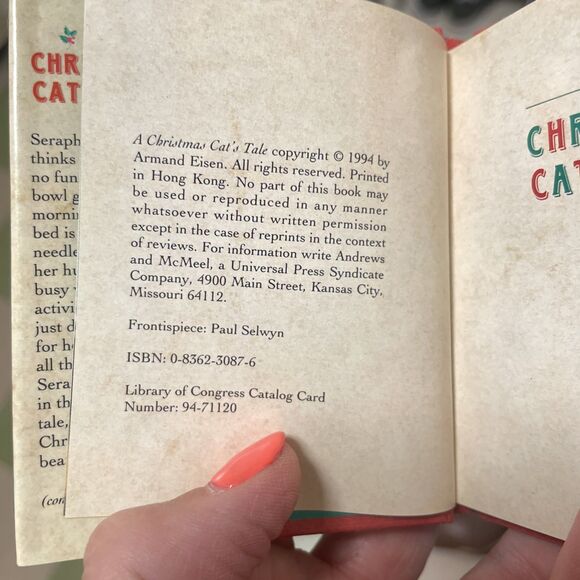 CHR
CAT
Seraph
thinks
no fun
bowl g
mornin
bed is
needle
her hu
busy
activi
just d
for h
all th
Sera
in th
tale,
Chr
bea
(con
A Christmas Cat's Tale copyright © 1994 by
Armand Eisen. All rights reserved. Printed
in Hong Kong. No part of this book may
be used or reproduced in any manner
whatsoever without written permission
except in the case of reprints in the context
of reviews. For information write Andrews
and McMeel, a Universal Press Syndicate
Company, 4900 Main Street, Kansas City,
Missouri 64112.
Frontispiece: Paul Selwyn
ISBN: 0-8362-3087-6
Library of Congress Catalog Card
Number: 94-71120
CHR
CAT